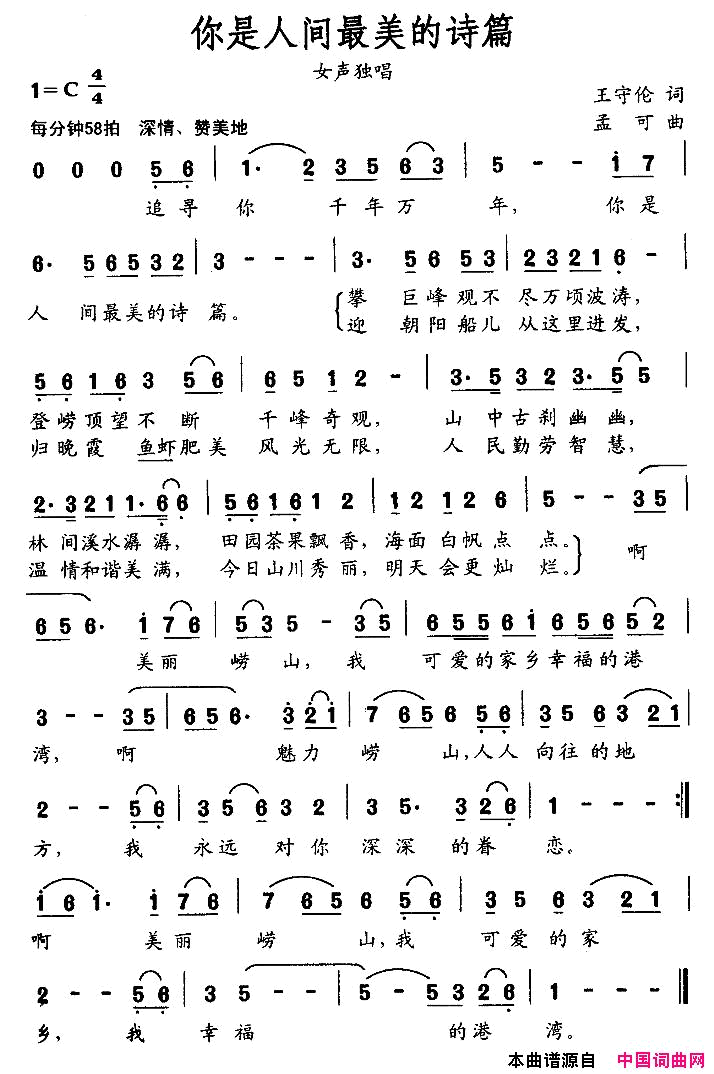 你是人间最美的诗篇
女声独唱
1=C 4/4
王守伦 词
每分钟58拍 深情、赞美地
孟可曲
0 0 0 5 6 | 1· 2 3 5 6 3 | 5 - - 1 7
追寻你 千年万 年, 你是
6· 5 6 5 3 2 | 3 - - - | 3· 5 6 5 3 | 2 3 2 1 6 -
人 间最美的诗 篇。 攀 巨峰观不 尽万顷波涛,
迎 朝阳船儿 从这里进发,
5 6 1 6 3 5 6 | 1 6 5 1 2 - | 3· 5 3 2 3· 5 5
登崂顶望不 断 千峰奇观, 山 中古刹幽幽,
归晚霞 鱼虾肥美 风光无限, 人 民勤劳智慧,
2· 3 2 1 1· 6 6 | 5 6 1 6 1 2 | 1 2 1 2 6 | 5 - - 3 5
林 间溪水潺潺, 田园茶果飘香, 海面白帆点 点。 啊
温 情和谐美 满, 今日山川秀丽, 明天会更灿 烂。
6 5 6· 1 7 6 | 5 3 5 - 3 5 | 6 5 5 6 1 6 5 6 5 2
美丽 崂山, 我 可爱的家乡幸福的港
3 - - 3 5 | 6 5 6· 3 2 1 | 7 6 5 6 5 6 | 5 3 5 6 3 2 1
湾, 啊 魅力 崂 山,人人 向往的地
2 - - 5 6 | 3 5 6 3 2 | 3 5· 3 2 6 | 1 - - - :‖
方, 我 永远 对你 深深 的眷 恋。
1 6 1· 1 7 6 | 7 6 5 6 5 6 | 3 5 6 3 2 1
啊 美丽 崂 山,我 可爱的家
2 - - 5 6 | 3 5 - - | 5 - 5 3 2 6 | 1 - - - ‖
乡, 我 幸福 的港 湾。
本曲谱源自 中国词曲网